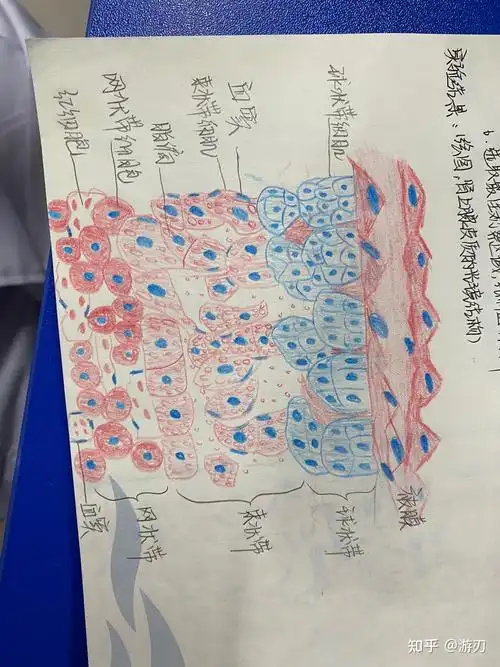 实验结果:(绘图,肾上腺皮质的光镜结构)
被膜
球状带细胞
球状带
血窦
束状带细胞
束状带
脂滴
网状带细胞
网状带
红细胞
血窦
知乎 @游刃